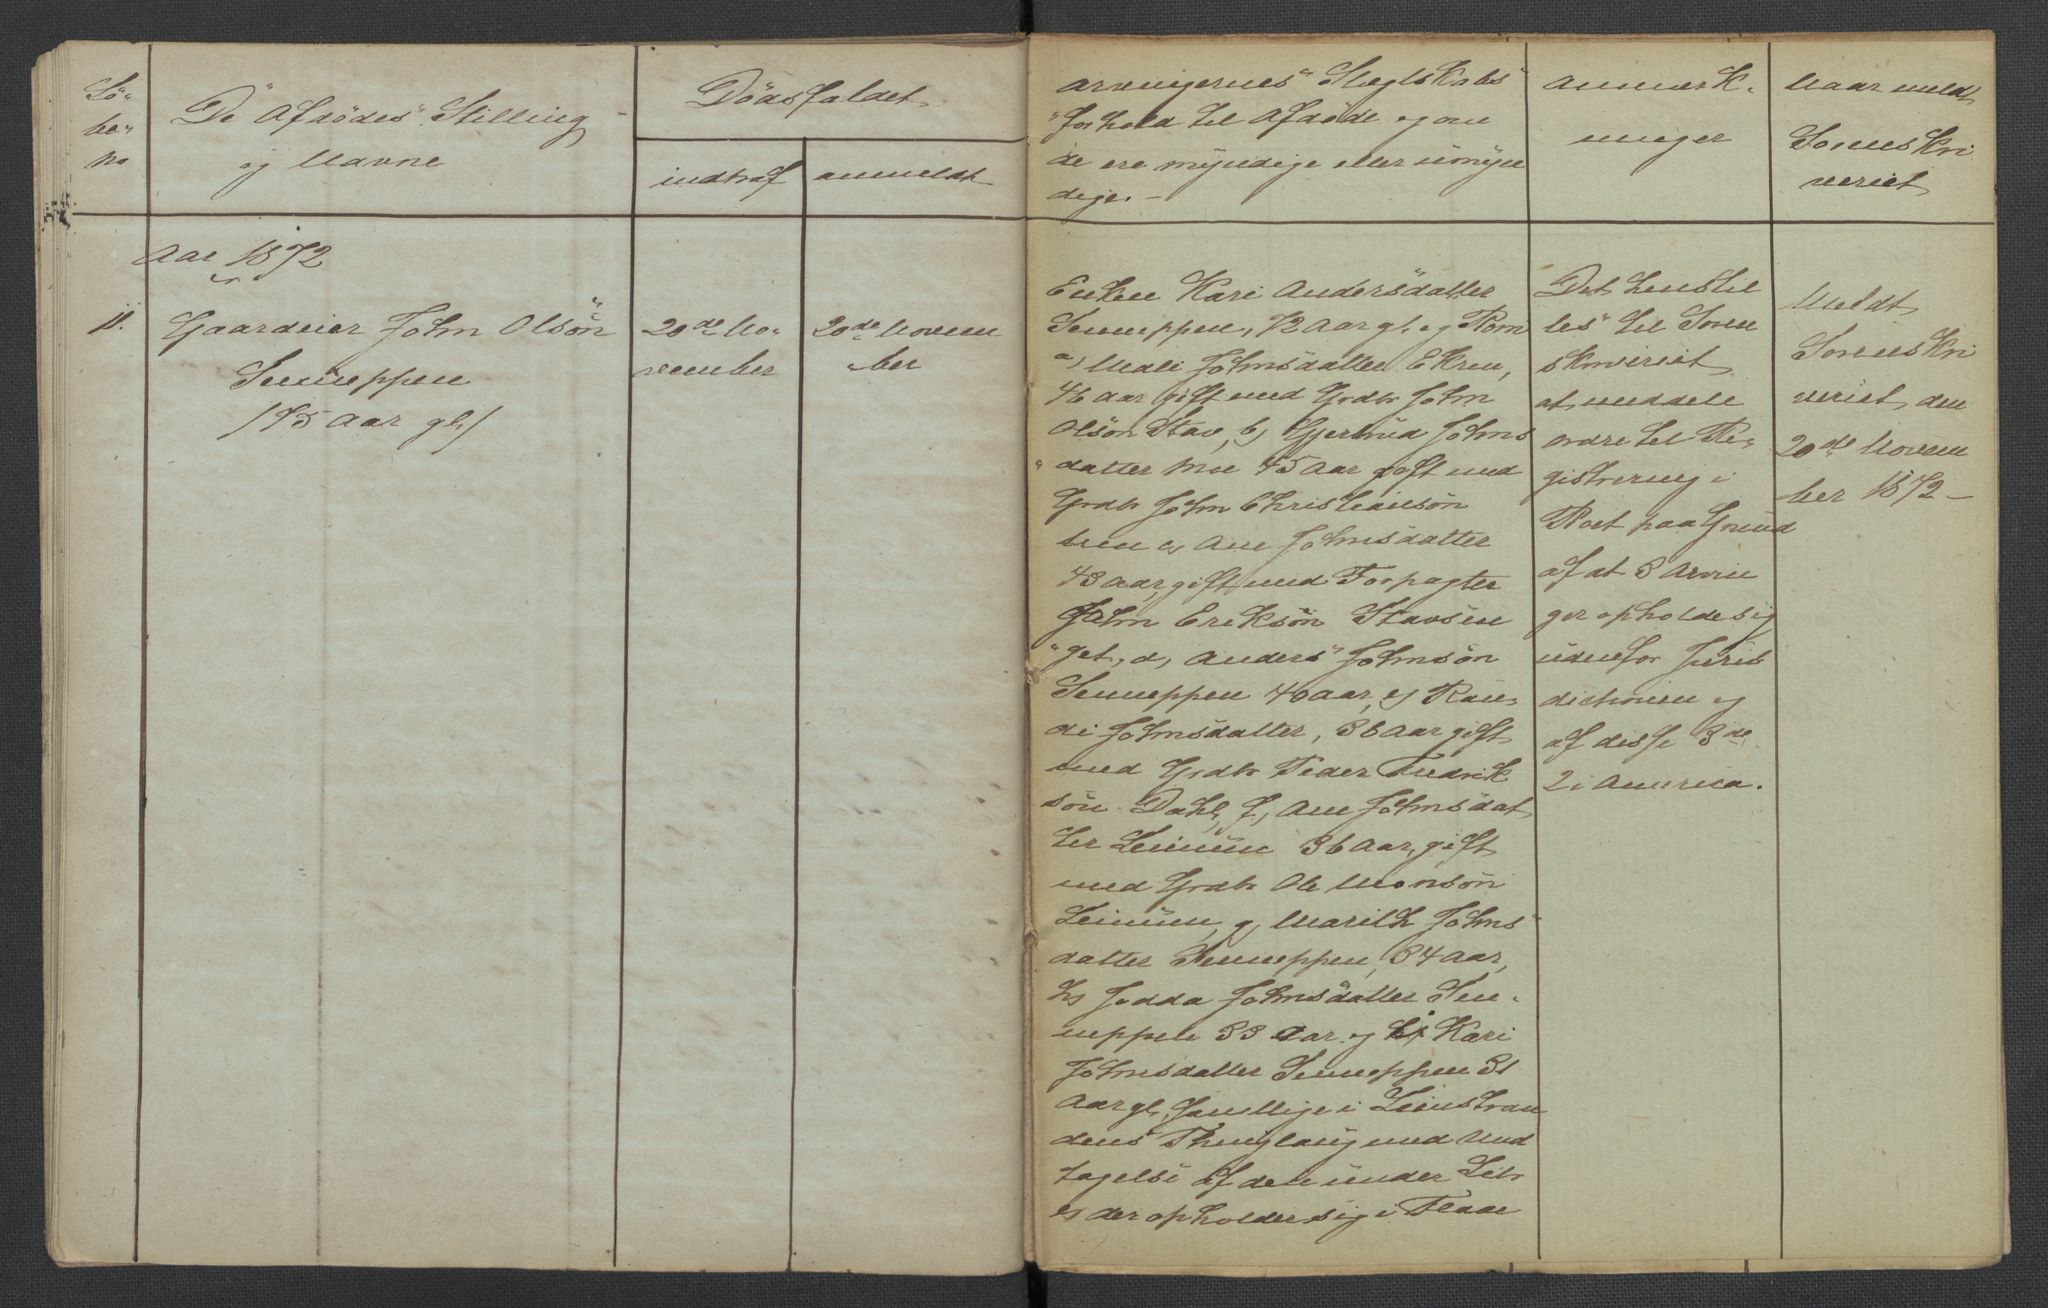 Lö-
be-
no
De Afdödes Stilling
og Navne
Dödsfaldet
indtraf
anmeldt
Arvingernes Slægtskabs
forhold til Afdöde og om
de ere myndige eller umyn
dige. —
Anmærk-
ninger
Naar meldt
Sorenskri
veriet
Aar 1872
11.
Gaardeier John Olsön
Semneppen
/75 Aar gl/
20de No-
vember
20de Novem
ber
Enken Kari Andersdatter
Semneppen, 72 Aar gl. og Börn
a, Mali Johnsdatter Ekren,
46 Aar gift med Grdbr John
Olsön Stav, b, Gjertrud Johns
datter Moe 45 Aar gift med
Grdbr John Christiansön
c, Ane Johnsdatter
43 Aar, gift med Forpagter
John Eriksön Stavsen
get, d, Anders Johnsön
Semneppen 40 Aar, e, Ran-
di Johnsdatter, 36 Aar gift
med Grdbr Peder Fredrik
sön Dahl, f, Ane Johnsdat
ter Leinum 36 Aar, gift
med Grdbr Ole Monsön
Leinum, g, Marith Johns
datter Semneppen, 34 Aar,
h, Johnsdatter Sem-
neppen 33 Aar og i, Kari
Johnsdatter Semneppen 31
Aar gl, samtlige i Leinstran
dens Thinglaug med Und
tagelse af den under Litr
e, der opholder sig i Flaae
Det henstil
les til Soren
skriveriet
at meddele
Ordre til Re-
gistrering i
Boet paa Grund
af at 3 Arvin
ger opholde sig
udenfor Juris
dictionen og
af disse 3de
2 i America.
Meldt
Sorenskri
veriet den
20de Novem
ber 1872 —